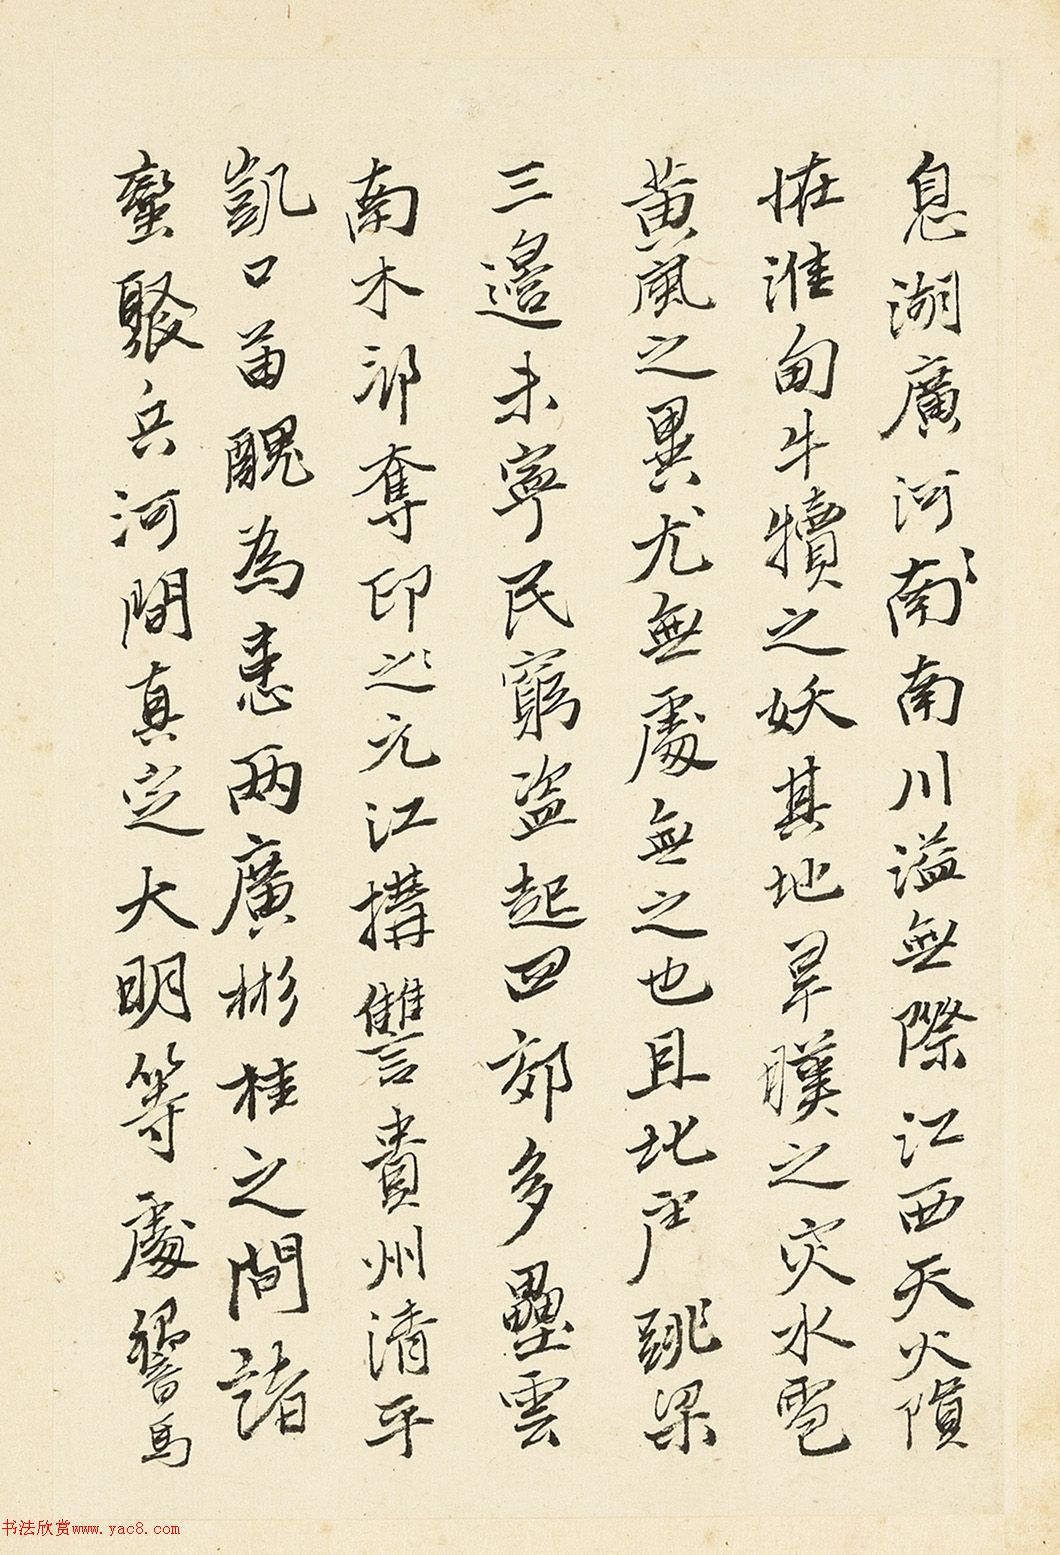 息湖廣河南〻南川溢無際江西天火隕
摧淮甸牛犢之妖其地旱暵之灾水雹
黄風之異尤無處無之也且北虜跳梁
三邊未寧民窮盗起四郊多壘雲
南木邦奪印之〻元江搆讐貴州清平
凱口苗醜為恚兩廣彬桂之間諸
蠻聚兵河間真定大明等處響馬
书法欣赏www.yac8.com